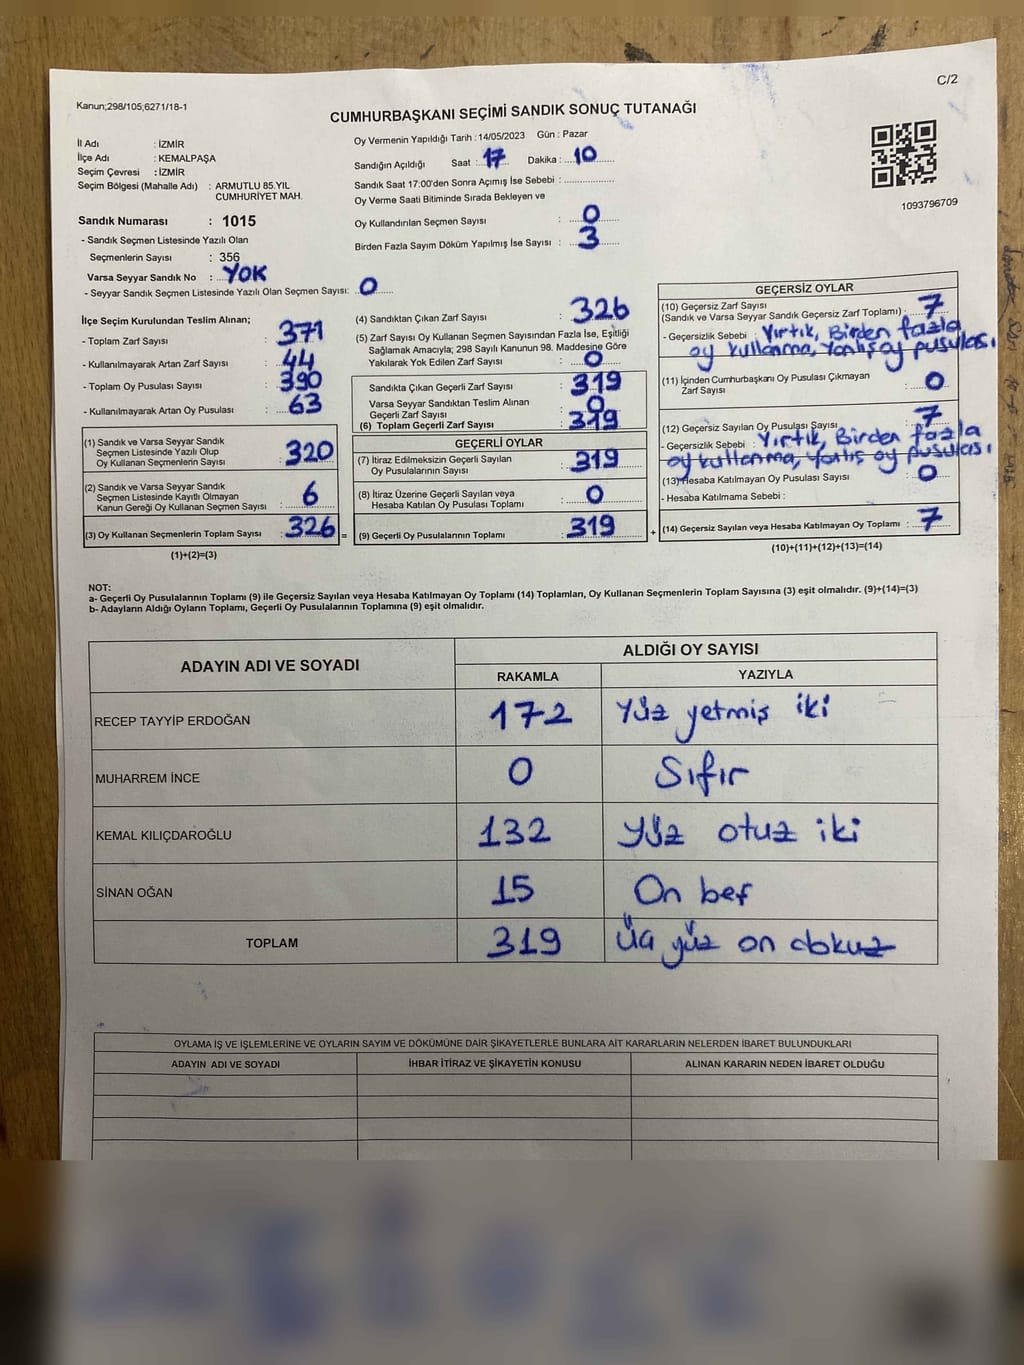 C/2
Kanun;298/105;6271/18-1
CUMHURBAŞKANI SEÇİMİ SANDIK SONUÇ TUTANAĞI
İl Adı : İZMİR
İlçe Adı : KEMALPAŞA
Seçim Çevresi : İZMİR
Seçim Bölgesi (Mahalle Adı) : ARMUTLU 85.YIL
CUMHURİYET MAH.
Sandık Numarası : 1015
- Sandık Seçmen Listesinde Yazılı Olan
Seçmenlerin Sayısı : 356
Varsa Seyyar Sandık No : YOK
- Seyyar Sandık Seçmen Listesinde Yazılı Olan Seçmen Sayısı: 0
Oy Vermenin Yapıldığı Tarih : 14/05/2023 Gün : Pazar
Sandığın Açıldığı Saat : 17 Dakika : 10
Sandık Saat 17:00'den Sonra Açımış İse Sebebi :
Oy Verme Saati Bitiminde Sırada Bekleyen ve
Oy Kullandırılan Seçmen Sayısı : 0
Birden Fazla Sayım Döküm Yapılmış İse Sayısı : 3
1093796709
İlçe Seçim Kurulundan Teslim Alınan;
- Toplam Zarf Sayısı : 371
- Kullanılmayarak Artan Zarf Sayısı : 44
- Toplam Oy Pusulası Sayısı : 390
- Kullanılmayarak Artan Oy Pusulası : 63
(1) Sandık ve Varsa Seyyar Sandık
Seçmen Listesinde Yazılı Olup
Oy Kullanan Seçmenlerin Sayısı : 320
(2) Sandık ve Varsa Seyyar Sandık
Seçmen Listesinde Kayıtlı Olmayan
Kanun Gereği Oy Kullanan Seçmen Sayısı : 6
(3) Oy Kullanan Seçmenlerin Toplam Sayısı : 326 =
(1)+(2)=(3)
(4) Sandıktan Çıkan Zarf Sayısı : 326
(5) Zarf Sayısı Oy Kullanan Seçmen Sayısından Fazla İse, Eşitliği
Sağlamak Amacıyla; 298 Sayılı Kanunun 98. Maddesine Göre
Yakılarak Yok Edilen Zarf Sayısı : 0
Sandıkta Çıkan Geçerli Zarf Sayısı : 319
Varsa Seyyar Sandıktan Teslim Alınan
Geçerli Zarf Sayısı : 0
(6) Toplam Geçerli Zarf Sayısı : 319
GEÇERLİ OYLAR
(7) İtiraz Edilmeksizin Geçerli Sayılan
Oy Pusulalarının Sayısı : 319
(8) İtiraz Üzerine Geçerli Sayılan veya
Hesaba Katılan Oy Pusulası Toplamı : 0
(9) Geçerli Oy Pusulalarının Toplamı : 319 +
GEÇERSİZ OYLAR
(10) Geçersiz Zarf Sayısı
(Sandık ve Varsa Seyyar Sandık Geçersiz Zarf Toplamı) : 7
- Geçersizlik Sebebi : Yırtık, Birden fazla
oy kullanma, Yanlış oy pusulası
(11) İçinden Cumhurbaşkanı Oy Pusulası Çıkmayan
Zarf Sayısı : 0
(12) Geçersiz Sayılan Oy Pusulası Sayısı : 7
- Geçersizlik Sebebi : Yırtık, Birden fazla
oy kullanma, Yanlış oy pusulası
(13) Hesaba Katılmayan Oy Pusulası Sayısı : 0
- Hesaba Katılmama Sebebi :
(14) Geçersiz Sayılan veya Hesaba Katılmayan Oy Toplamı : 7
(10)+(11)+(12)+(13)=(14)
NOT:
a- Geçerli Oy Pusulalarının Toplamı (9) ile Geçersiz Sayılan veya Hesaba Katılmayan Oy Toplamı (14) Toplamları, Oy Kullanan Seçmenlerin Toplam Sayısına (3) eşit olmalıdır. (9)+(14)=(3)
b- Adayların Aldığı Oyların Toplamı, Geçerli Oy Pusulalarının Toplamına (9) eşit olmalıdır.
ADAYIN ADI VE SOYADI ALDIĞI OY SAYISI
RAKAMLA YAZIYLA
RECEP TAYYİP ERDOĞAN 172 Yüz yetmiş iki
MUHARREM İNCE 0 Sıfır
KEMAL KILIÇDAROĞLU 132 Yüz otuz iki
SİNAN OĞAN 15 On beş
TOPLAM 319 Üç yüz on dokuz
OYLAMA İŞ VE İŞLEMLERİNE VE OYLARIN SAYIM VE DÖKÜMÜNE DAİR ŞİKAYETLERLE BUNLARA AİT KARARLARIN NELERDEN İBARET BULUNDUKLARI
ADAYIN ADI VE SOYADI İHBAR İTİRAZ VE ŞİKAYETİN KONUSU ALINAN KARARIN NEDEN İBARET OLDUĞU